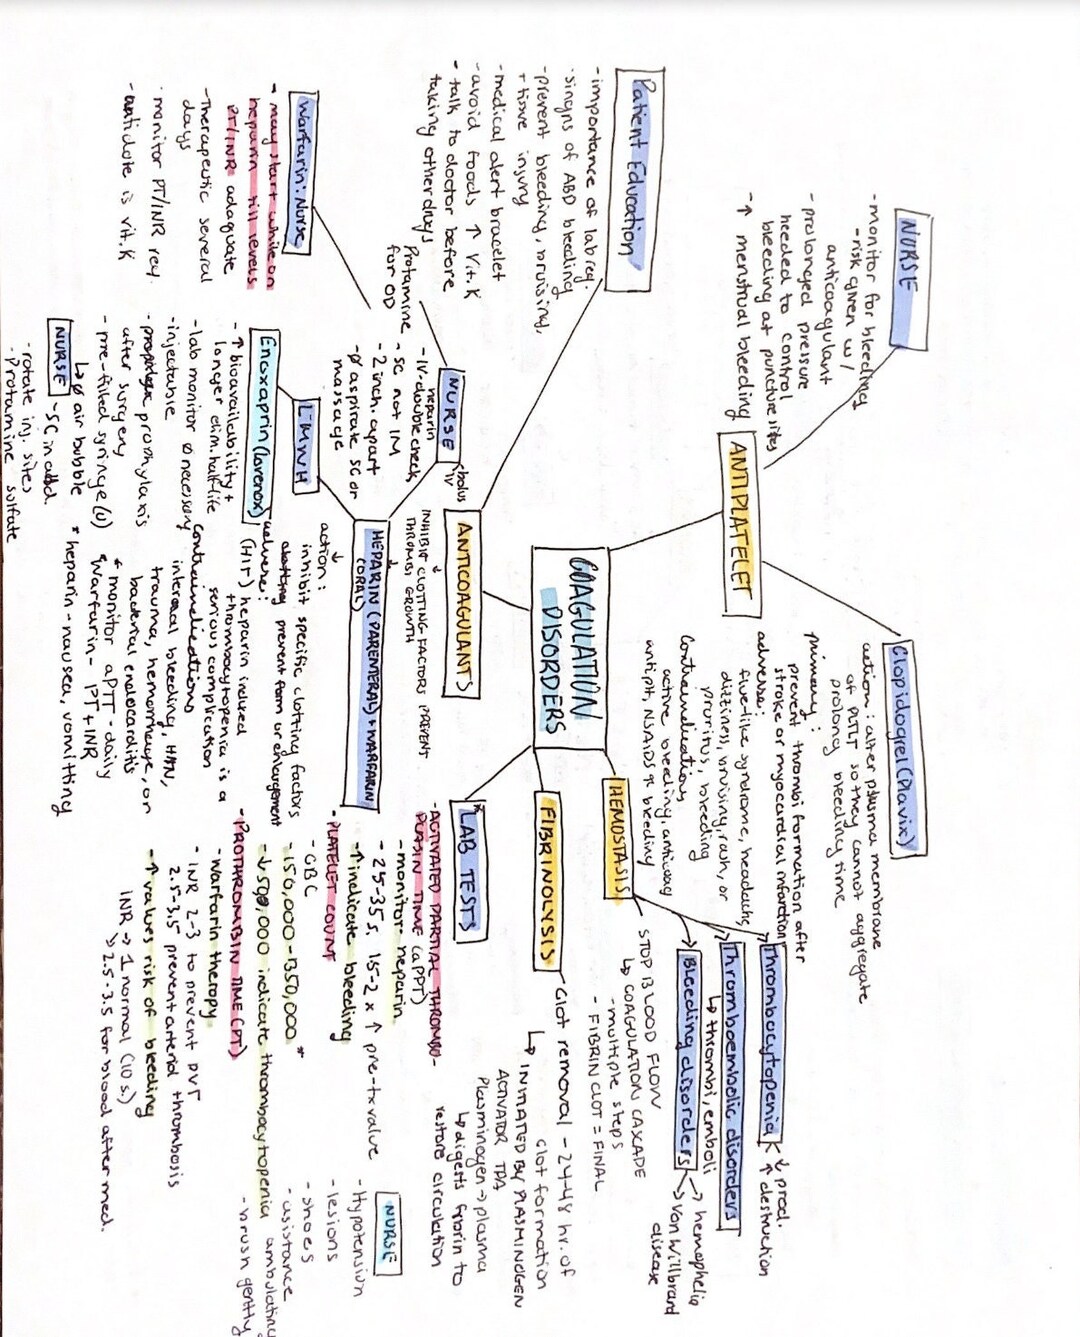 COAGULATION
DISORDERS
ANTIPLATELET
NURSE
- monitor for bleeding
- risk given w/
anticoagulant
- prolonged pressure
needed to control
bleeding at puncture sites
- ↑ menstrual bleeding
Clopidogrel (Plavix)
action: alter plasma membrane
of PLTLT so they cannot aggregate
prolong bleeding time
primary:
prevent thrombi formation after
stroke or myocardial infarction
adverse:
flue-like syndrome, headache,
dizziness, bruising, rash, or
pruritus, bleeding
Contraindications
active bleeding, anticoag
antiplt, NSAIDs ↑ bleeding
HEMOSTASIS
Thrombocytopenia
↓ prod.
↑ destruction
Thromboembolic disorders
↳ thrombi, emboli
Bleeding disorders
→ hemophelia
→ von Willbrand
disease
STOP BLOOD FLOW
↳ COAGULATION CASCADE
- multiple steps
- FIBRIN CLOT = FINAL
FIBRINOLYSIS
Clot removal - 24-48 hr. of
clot formation
↳ INITIATED BY PLASMINOGEN
ACTIVATOR TPA
Plasminogen → plasma
↳ digests fibrin to
restore circulation
* LAB TESTS
- ACTIVATED PARTIAL THROMBO-
PLASIN TIME (aPPT)
- monitor heparin
- 25-35 s, 1.5-2 x ↑ pre-tx value
- ↑ indicate bleeding
- PLATELET COUNT
- CBC
- 150,000 - 1350,000 *
- ↓ 50,000 indicate thrombocytopenia
- PROTHROMBIN TIME (PT)
- Warfarin therapy
- INR 2-3 to prevent DVT
2.5-3.5 prevent arterial thrombosis
- ↑ values risk of bleeding
INR → 1 normal (10 s.)
↳ 2.5-3.5 for blood after med.
NURSE
- Hypotension
- lesions
- shoes
- assistance ambulating
- brush gently
ANTICOAGULANTS
↓
INHIBIT CLOTTING FACTORS PREVENT
THROMBI GROWTH
Patient Education
- importance of lab req.
- singns of ABD bleeding
- prevent bleeding, bruising,
+ tissue injury
- medical alert bracelet
- avoid foods ↑ Vit. K
- talk to doctor before
taking other drugs
NURSE
bolus
IV
heparin
- IV-double check
- SC not IM
- 2 inch. apart
- Ø aspirate SC or
massage
Protamine
for OD
Warfarin: Nurse
- may start while on
heparin till levels
PT/INR adaquate
- Therapeutic several
days
- monitor PT/INR reg.
- antidote is vit. K
HEPARIN (PARENTERAL) + WARFARIN
(ORAL)
action:
↓
inhibit specific clotting factors
prevent form or enlargement
adverse:
(HIT) heparin induced
thrombocytopenia is a
serious complication
Contraindications
internal bleeding, HTN,
trauma, hemorrhage, or
bacterial endocarditis
* monitor aPTT - daily
* Warfarin - PT + INR
* heparin - nausea, vomitting
LMWH
Enoxaprin (lovenox)
- ↑ bioavailability +
longer elim. half-life
- lab monitor Ø necessary
- injectable
- prophylaxis
after surgery
- pre-filled syringe (u)
↳ Ø air bubble
NURSE
- SC in abd.
- rotate inj. sites
- Protamine sulfate